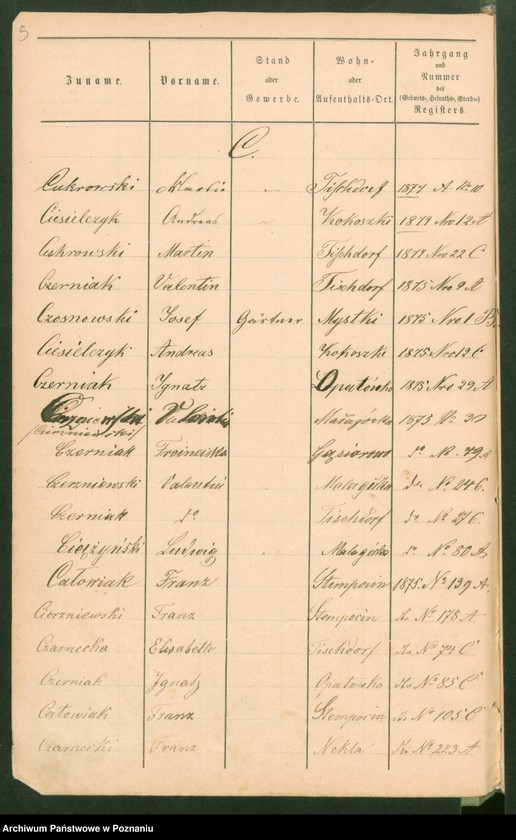 5
Zuname. Vorname. Stand oder Gewerbe. Wohn- oder Aufenthalts-Ort. Jahrgang und Nummer des (Geburts-, Heiraths-, Sterbe-) Registers
C.
Cukrowski Martin Tischdorf 1874 A No 10
Ciesielczyk Andreas Kokoszki 1874 Nro 12 A
Cukrowski Martin Tischdorf 1874 Nro 22 C
Czerniak Valentin Tischdorf 1875 Nro 9 A
Czosnowski Josef Gärtner Mystki 1875 Nro 1 B.
Ciesielczyk Andreas Kokoszki 1875 Nro 12 C
Czerniak Ignatz Opatowko 1875 Nro 29 A
Valentin Małagórka 1875 No
Czerniak Gąsiorowo do No 49 A
Cierzniewski Valentin do No 24 C.
Czerniak do Tischdorf do No 27 C.
Ciążyński Ludwig Malagórka do No 80 A.
Całowiak Franz Stempocin 1875 No 139 A.
Cierzniewski Franz Stempocin do No 178 A
Czarnecka Elisabeth Tischdorf do No 74 C
Czerniak Ignatz Opatowko do No 85 C
Całowiak Franz Stempocin do No 105 C
Czarnecki Franz Nekla do No 223 A
Archiwum Państwowe w Poznaniu